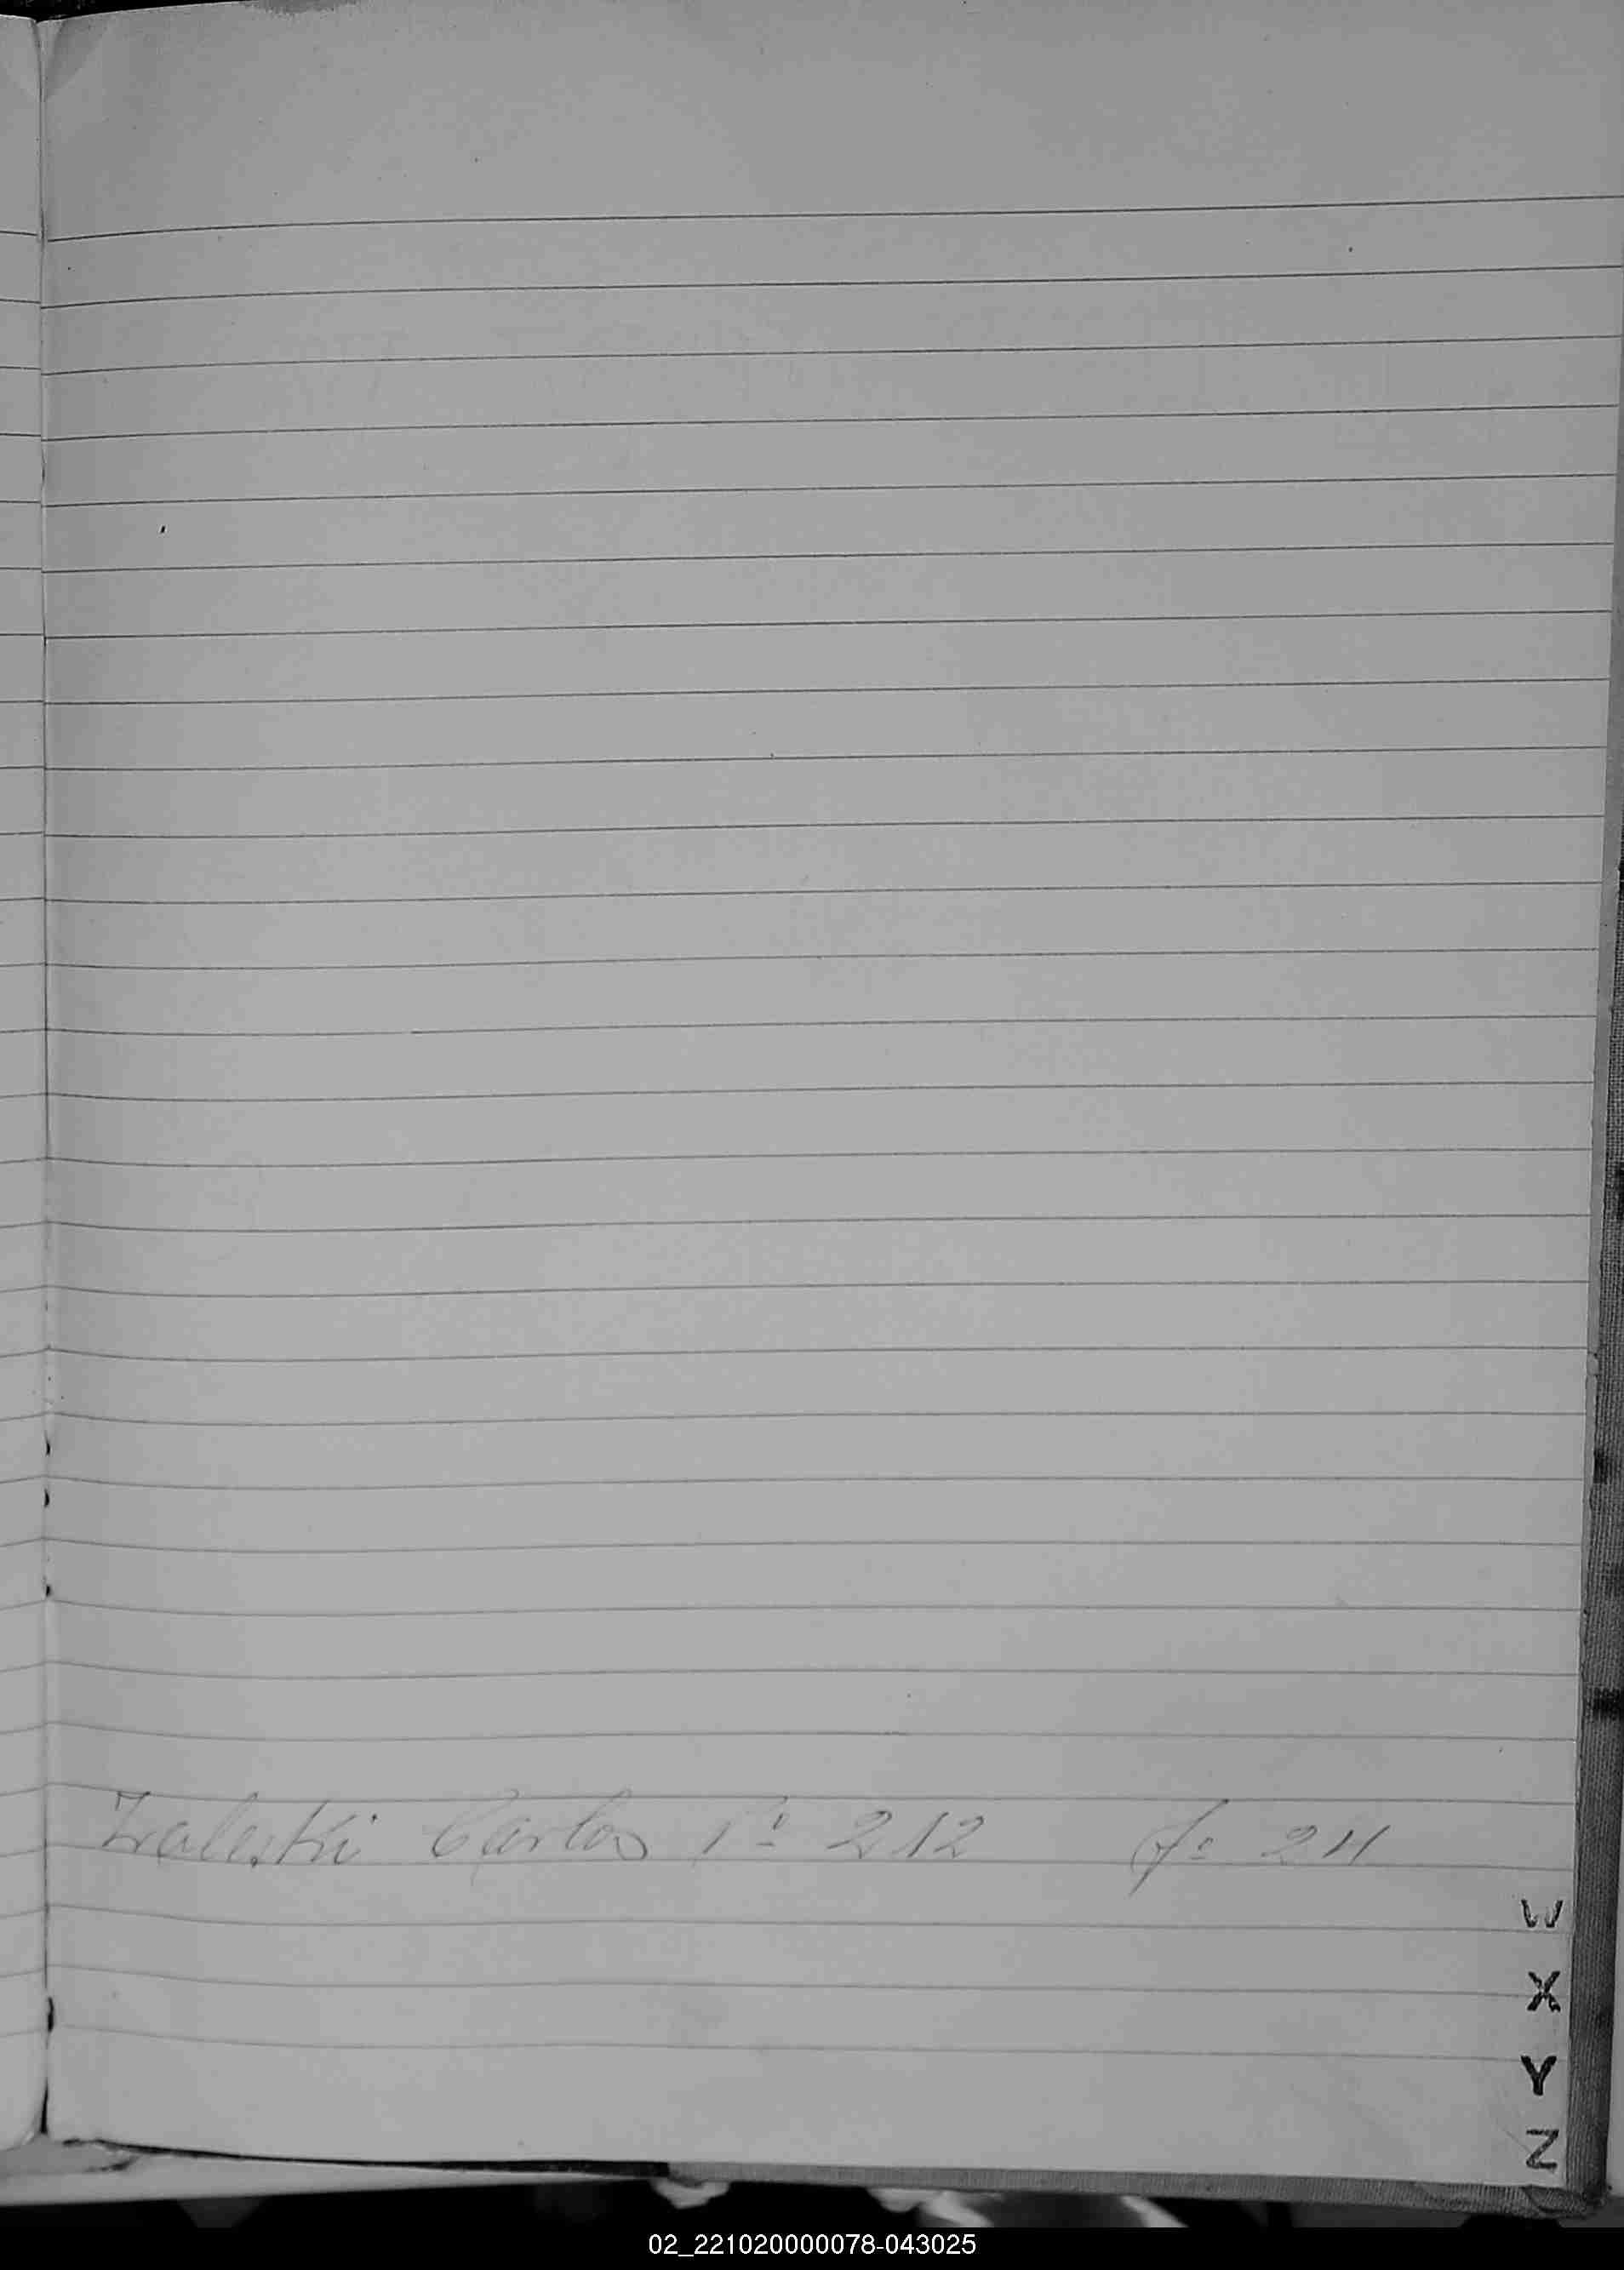 Zaleski Carlos 1: 212 f: 211
W
X
Y
Z
02_221020000078-043025